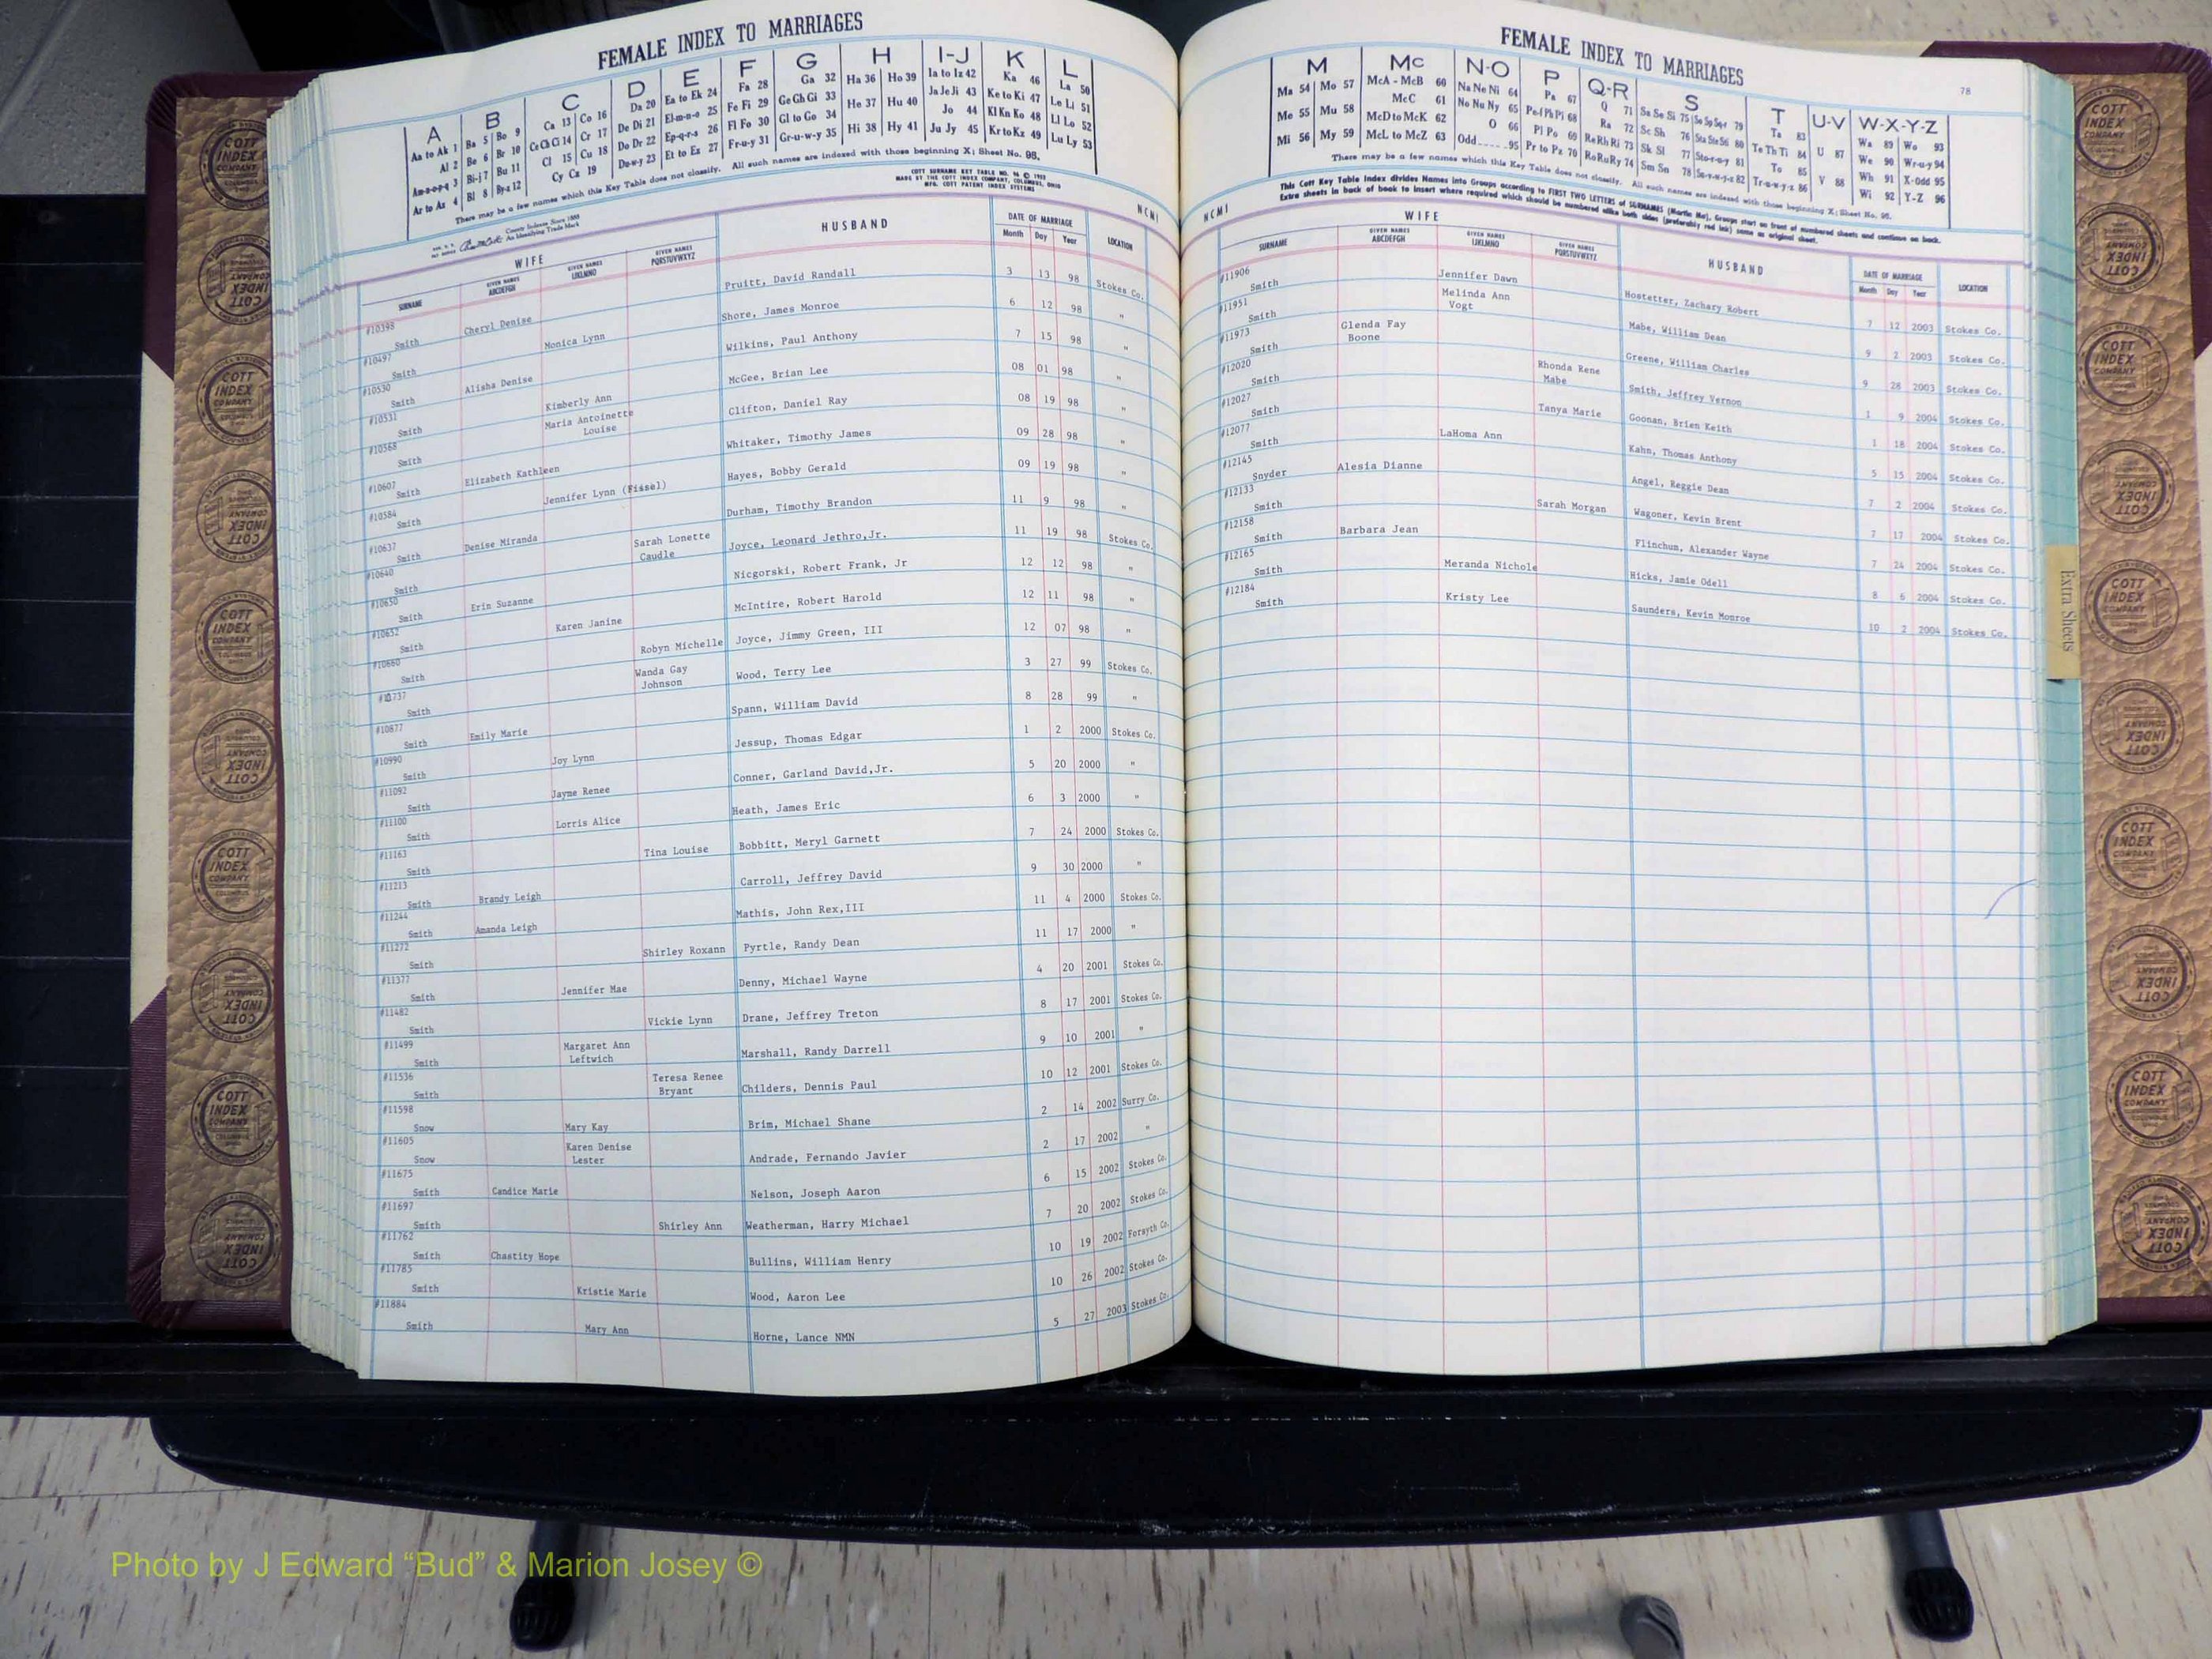 FEMALE INDEX TO MARRIAGES
A B C D E F G H I-J K L
Aa to Ak 1 Ba 5 Bo 9 Ca 13 Co 16 Da 20 Ea to Ek 24 Fa 28 Ga 32 Ha 36 Ho 39 Ia to Iz 42 Ka 46 La 50
Al 2 Be 6 Br 10 Ce Ch Ci 14 Cr 17 De Di 21 El-m-n-o 25 Fe Fi 29 Ge Gh Gi 33 He 37 Hu 40 Ja Je Ji 43 Ke to Ki 47 Le Li 51
Am-n-o-p-q 3 Bi-j 7 Bu 11 Cl 15 Cu 18 Do Dr 22 Ep-q-r-s 26 Fl Fo 30 Gl to Go 34 Hi 38 Hy 41 Jo 44 Kl Kn Ko 48 Ll Lo 52
Ar to Az 4 Bl 8 By-z 12 Cy Cz 19 Du-w-y 23 Et to Ez 27 Fr-u-y 31 Gr-u-w-y 35 Ju Jy 45 Kr to Kz 49 Lu Ly 53
There may be a few names which this Key Table does not classify. All such names are indexed with those beginning X; Sheet No. 95.
COTT SURNAME KEY TABLE NO. 96 © 1952
MADE BY THE COTT INDEX COMPANY, COLUMBUS, OHIO
MFG. COTT PATENT INDEX SYSTEMS
County Indexes Since 1888
An Identifying Trade Mark
NCMI
WIFE HUSBAND DATE OF MARRIAGE LOCATION
SURNAME GIVEN NAMES ABCDEFGH GIVEN NAMES IJKLMNO GIVEN NAMES PQRSTUVWXYZ Month Day Year
#10398 Smith Cheryl Denise Pruitt, David Randall 3 13 98 Stokes Co.
#10497 Smith Monica Lynn Shore, James Monroe 6 12 98 "
#10530 Smith Alisha Denise Wilkins, Paul Anthony 7 15 98 "
#10531 Smith Kimberly Ann McGee, Brian Lee 08 01 98 "
#10568 Smith Maria Antoinette Louise Clifton, Daniel Ray 08 19 98 "
#10607 Smith Elizabeth Kathleen Whitaker, Timothy James 09 28 98 "
#10584 Smith Jennifer Lynn (Fissel) Hayes, Bobby Gerald 09 19 98 "
#10637 Smith Denise Miranda Durham, Timothy Brandon 11 9 98 "
#10640 Smith Sarah Lonette Caudle Joyce, Leonard Jethro,Jr. 11 19 98 Stokes Co.
#10650 Smith Erin Suzanne Nicgorski, Robert Frank, Jr 12 12 98 "
#10652 Smith Karen Janine McIntire, Robert Harold 12 11 98 "
#10660 Smith Robyn Michelle Joyce, Jimmy Green, III 12 07 98 "
#10737 Smith Wanda Gay Johnson Wood, Terry Lee 3 27 99 Stokes Co.
#10877 Smith Emily Marie Spann, William David 8 28 99 "
#10990 Smith Joy Lynn Jessup, Thomas Edgar 1 2 2000 Stokes Co.
#11092 Smith Jayme Renee Conner, Garland David,Jr. 5 20 2000 "
#11100 Smith Lorris Alice Heath, James Eric 6 3 2000 "
#11163 Smith Tina Louise Bobbitt, Meryl Garnett 7 24 2000 Stokes Co.
#11213 Smith Brandy Leigh Carroll, Jeffrey David 9 30 2000 "
#11244 Smith Amanda Leigh Mathis, John Rex,III 11 4 2000 Stokes Co.
#11272 Smith Shirley Roxann Pyrtle, Randy Dean 11 17 2000 "
#11377 Smith Jennifer Mae Denny, Michael Wayne 4 20 2001 Stokes Co.
#11482 Smith Vickie Lynn Drane, Jeffrey Treton 8 17 2001 Stokes Co.
#11499 Smith Margaret Ann Leftwich Marshall, Randy Darrell 9 10 2001 "
#11536 Smith Teresa Renee Bryant Childers, Dennis Paul 10 12 2001 Stokes Co.
#11598 Snow Mary Kay Brim, Michael Shane 2 14 2002 Surry Co.
#11605 Snow Karen Denise Lester Andrade, Fernando Javier 2 17 2002 "
#11675 Smith Candice Marie Nelson, Joseph Aaron 6 15 2002 Stokes Co.
#11697 Smith Shirley Ann Weatherman, Harry Michael 7 20 2002 Stokes Co.
#11762 Smith Chastity Hope Bullins, William Henry 10 19 2002 Forsyth Co.
#11785 Smith Kristie Marie Wood, Aaron Lee 10 26 2002 Stokes Co.
#11884 Smith Mary Ann Horne, Lance NMN 5 27 2003 Stokes Co.
FEMALE INDEX TO MARRIAGES
78
M Mc N-O P Q-R S T U-V W-X-Y-Z
Ma 54 Mo 57 McA - McB 60 Na Ne Ni 64 Pa 67 Q 71 Sa Se Si 75 So Sp Sq-r 79 Ta 83 U 87 Wa 89 Wo 93
Me 55 Mu 58 McC 61 No Nu Ny 65 Pe-f Ph Pi 68 Ra 72 Sc Sh 76 Sta Ste 80 Te Th Ti 84 V 88 We 90 Wr-u-y 94
Mi 56 My 59 McD to McK 62 O 66 Pl Po 69 Re Rh Ri 73 Sk Sl 77 Sto-r-u-y 81 To 85 Wh 91 X-Odd 95
McL to McZ 63 Odd 95 Pr to Pz 70 Ro Ru Ry 74 Sm Sn 78 Su-v-w-y-z 82 Tr-u-w-y-z 86 Wi 92 Y-Z 96
There may be a few names which this Key Table does not classify. All such names are indexed with those beginning X; Sheet No. 95.
This Cott Key Table Index divides Names into Groups according to FIRST TWO LETTERS of SURNAMES (Martin Ma), Groups start on front of numbered sheets and continue on back.
Extra sheets in back of book to insert where required which should be numbered alike both sides (preferably red ink) same as original sheet.
NCMI
WIFE HUSBAND DATE OF MARRIAGE LOCATION
SURNAME GIVEN NAMES ABCDEFGH GIVEN NAMES IJKLMNO GIVEN NAMES PQRSTUVWXYZ Month Day Year
#11906 Smith Jennifer Dawn Hostetter, Zachary Robert 7 12 2003 Stokes Co.
#11951 Smith Melinda Ann Vogt Mabe, William Dean 9 2 2003 Stokes Co.
#11973 Smith Glenda Fay Boone Greene, William Charles 9 28 2003 Stokes Co.
#12020 Smith Rhonda Rene Mabe Smith, Jeffrey Vernon 1 9 2004 Stokes Co.
#12027 Smith Tanya Marie Goonan, Brien Keith 1 18 2004 Stokes Co.
#12077 Smith LaHoma Ann Kahn, Thomas Anthony 5 15 2004 Stokes Co.
#12145 Snyder Alesia Dianne Angel, Reggie Dean 7 2 2004 Stokes Co.
#12133 Smith Sarah Morgan Wagoner, Kevin Brent 7 17 2004 Stokes Co.
#12158 Smith Barbara Jean Flinchum, Alexander Wayne 7 24 2004 Stokes Co.
#12165 Smith Meranda Nichole Hicks, Jamie Odell 8 6 2004 Stokes Co.
#12184 Smith Kristy Lee Saunders, Kevin Monroe 10 2 2004 Stokes Co.
Extra Sheets
COTT INDEX COMPANY
Photo by J Edward “Bud” & Marion Josey ©